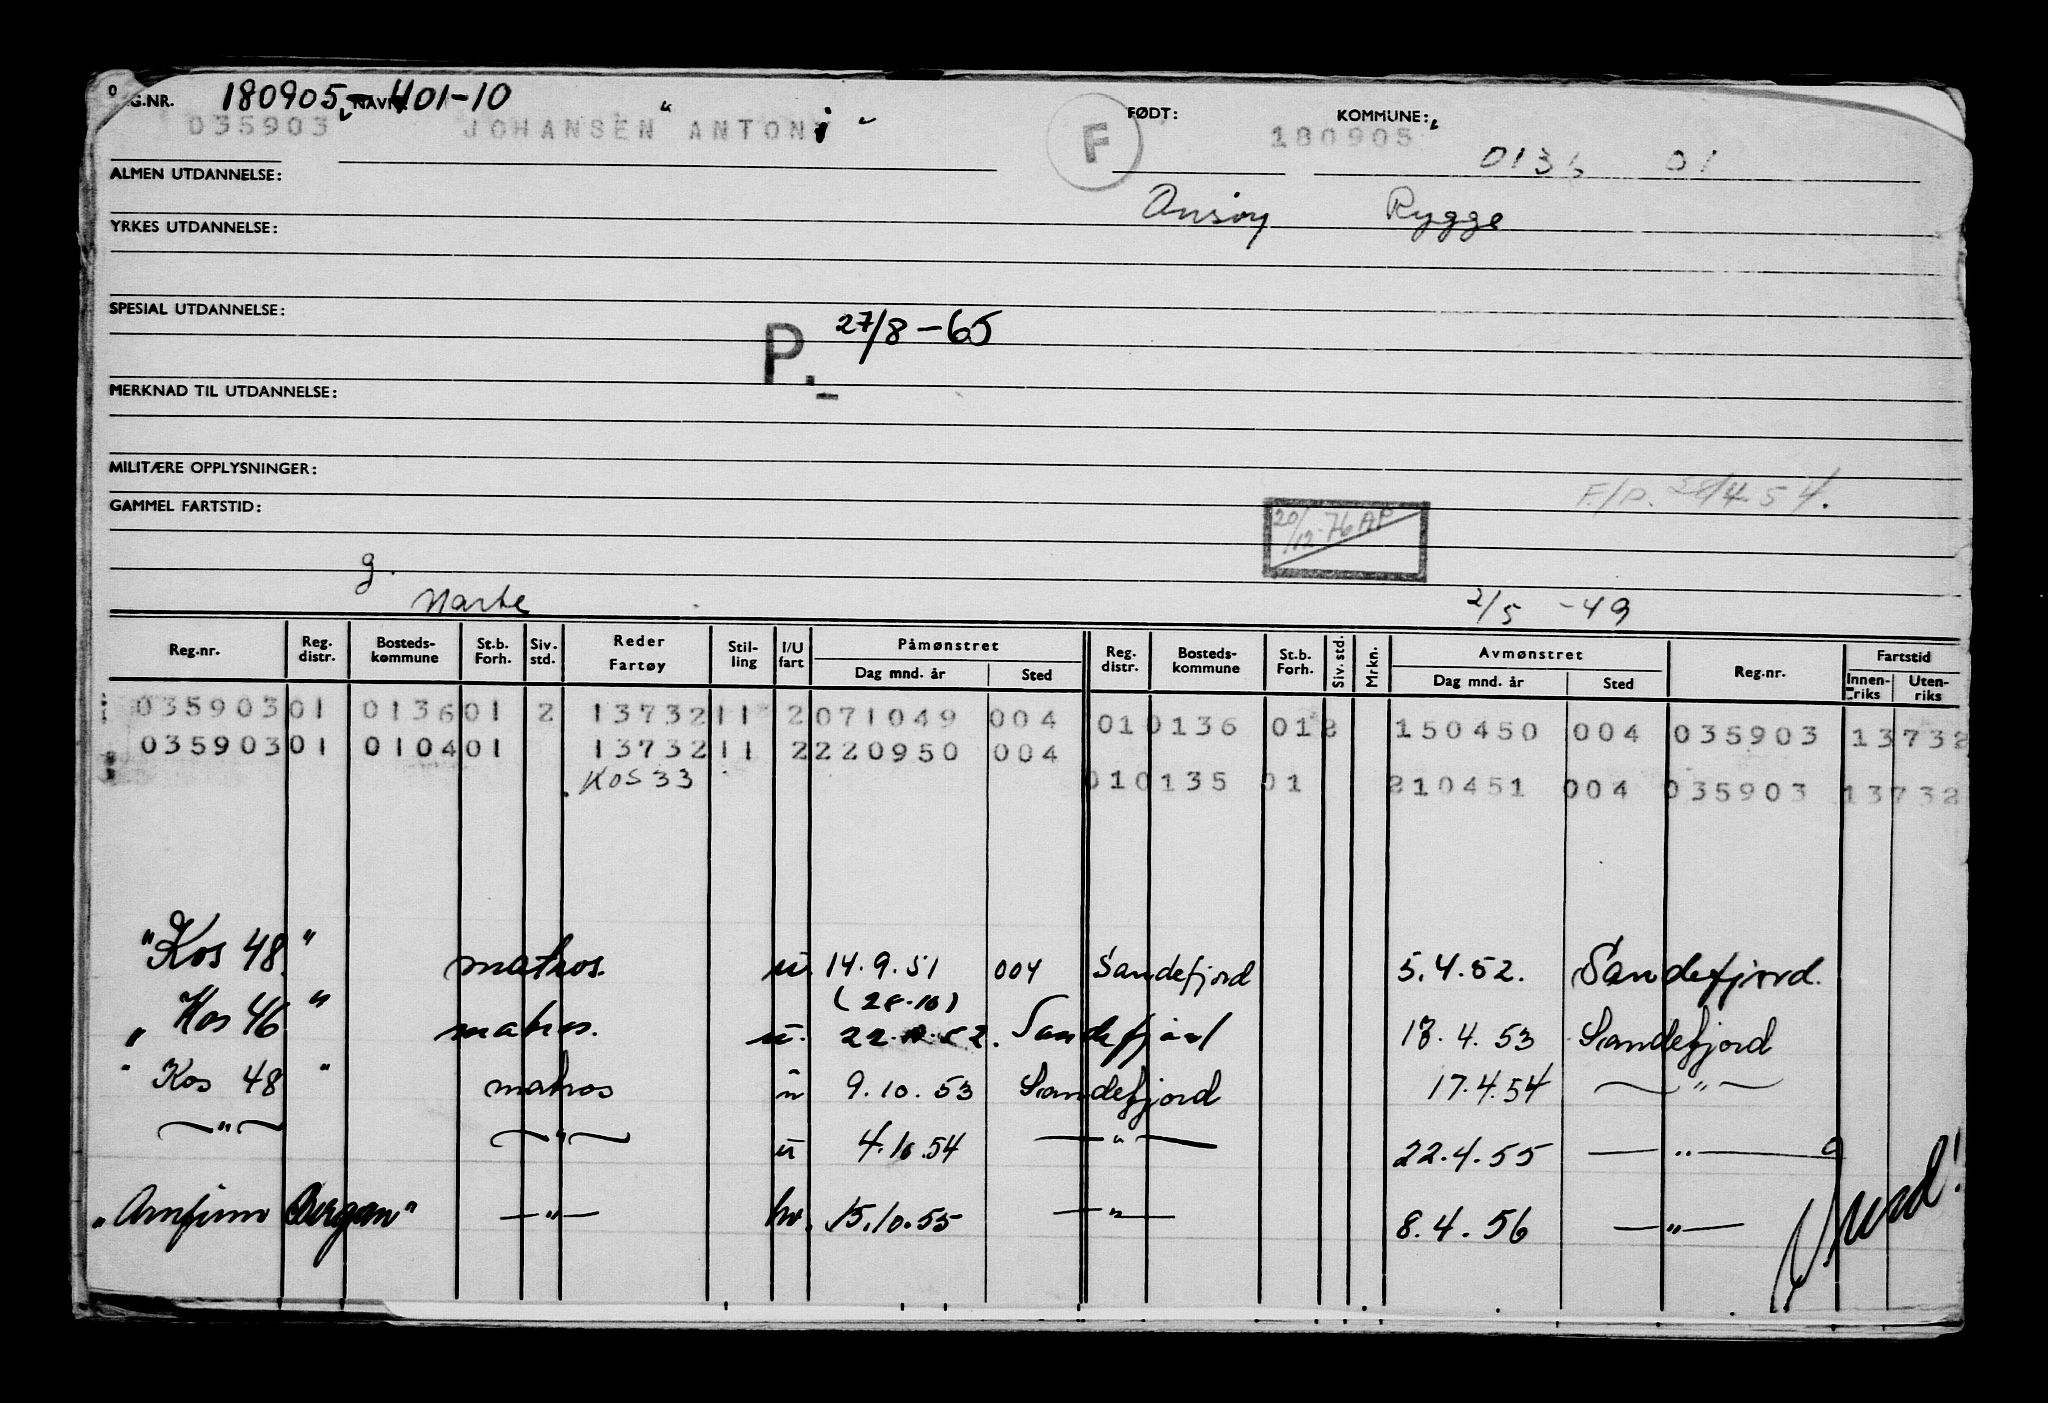 180905-401-10
REG.NR. NAVN:
035903 JOHANSEN ANTON i
F
FØDT: 180905
KOMMUNE: 0136 01
ALMEN UTDANNELSE:
Onsøy Rygge
YRKES UTDANNELSE:
SPESIAL UTDANNELSE:
P. 27/8-65
MERKNAD TIL UTDANNELSE:
MILITÆRE OPPLYSNINGER:
F/P. 28/4 54.
GAMMEL FARTSTID:
20/12-76 AP
g.
2/5 -49
Reg.nr. Reg. distr. Bosteds-kommune St.b. Forh. Siv. std. Reder Fartøy Stil-ling I/U fart Påmønstret Dag mnd. år Sted Reg. distr. Bosteds-kommune St.b. Forh. Siv. std. Mrkn. Avmønstret Dag mnd. år Sted Reg.nr. Fartstid Innen-riks Uten-riks
035903 01 0136 01 2 13732 11 2 071049 004 01 0136 01 2 150450 004 035903 13732
035903 01 0104 01 13732 11 2 220950 004
KOS 33 01 0135 01 210451 004 035903 13732
"Kos 48" matros. u. 14.9.51 004 Sandefjord 5.4.52. Sandefjord.
(28-10)
"Kos 46" matros. u. 22. 52. Sandefjord 18.4.53 Sandefjord
"Kos 48" matros u 9.10.53 Sandefjord 17.4.54 —"—
—"— —"— u 4.10.54 —"— 22.4.55 —"—
"Arnfinn Bergan" —"— hv. 15.10.55 —"— 8.4.56 —"—
Snud!